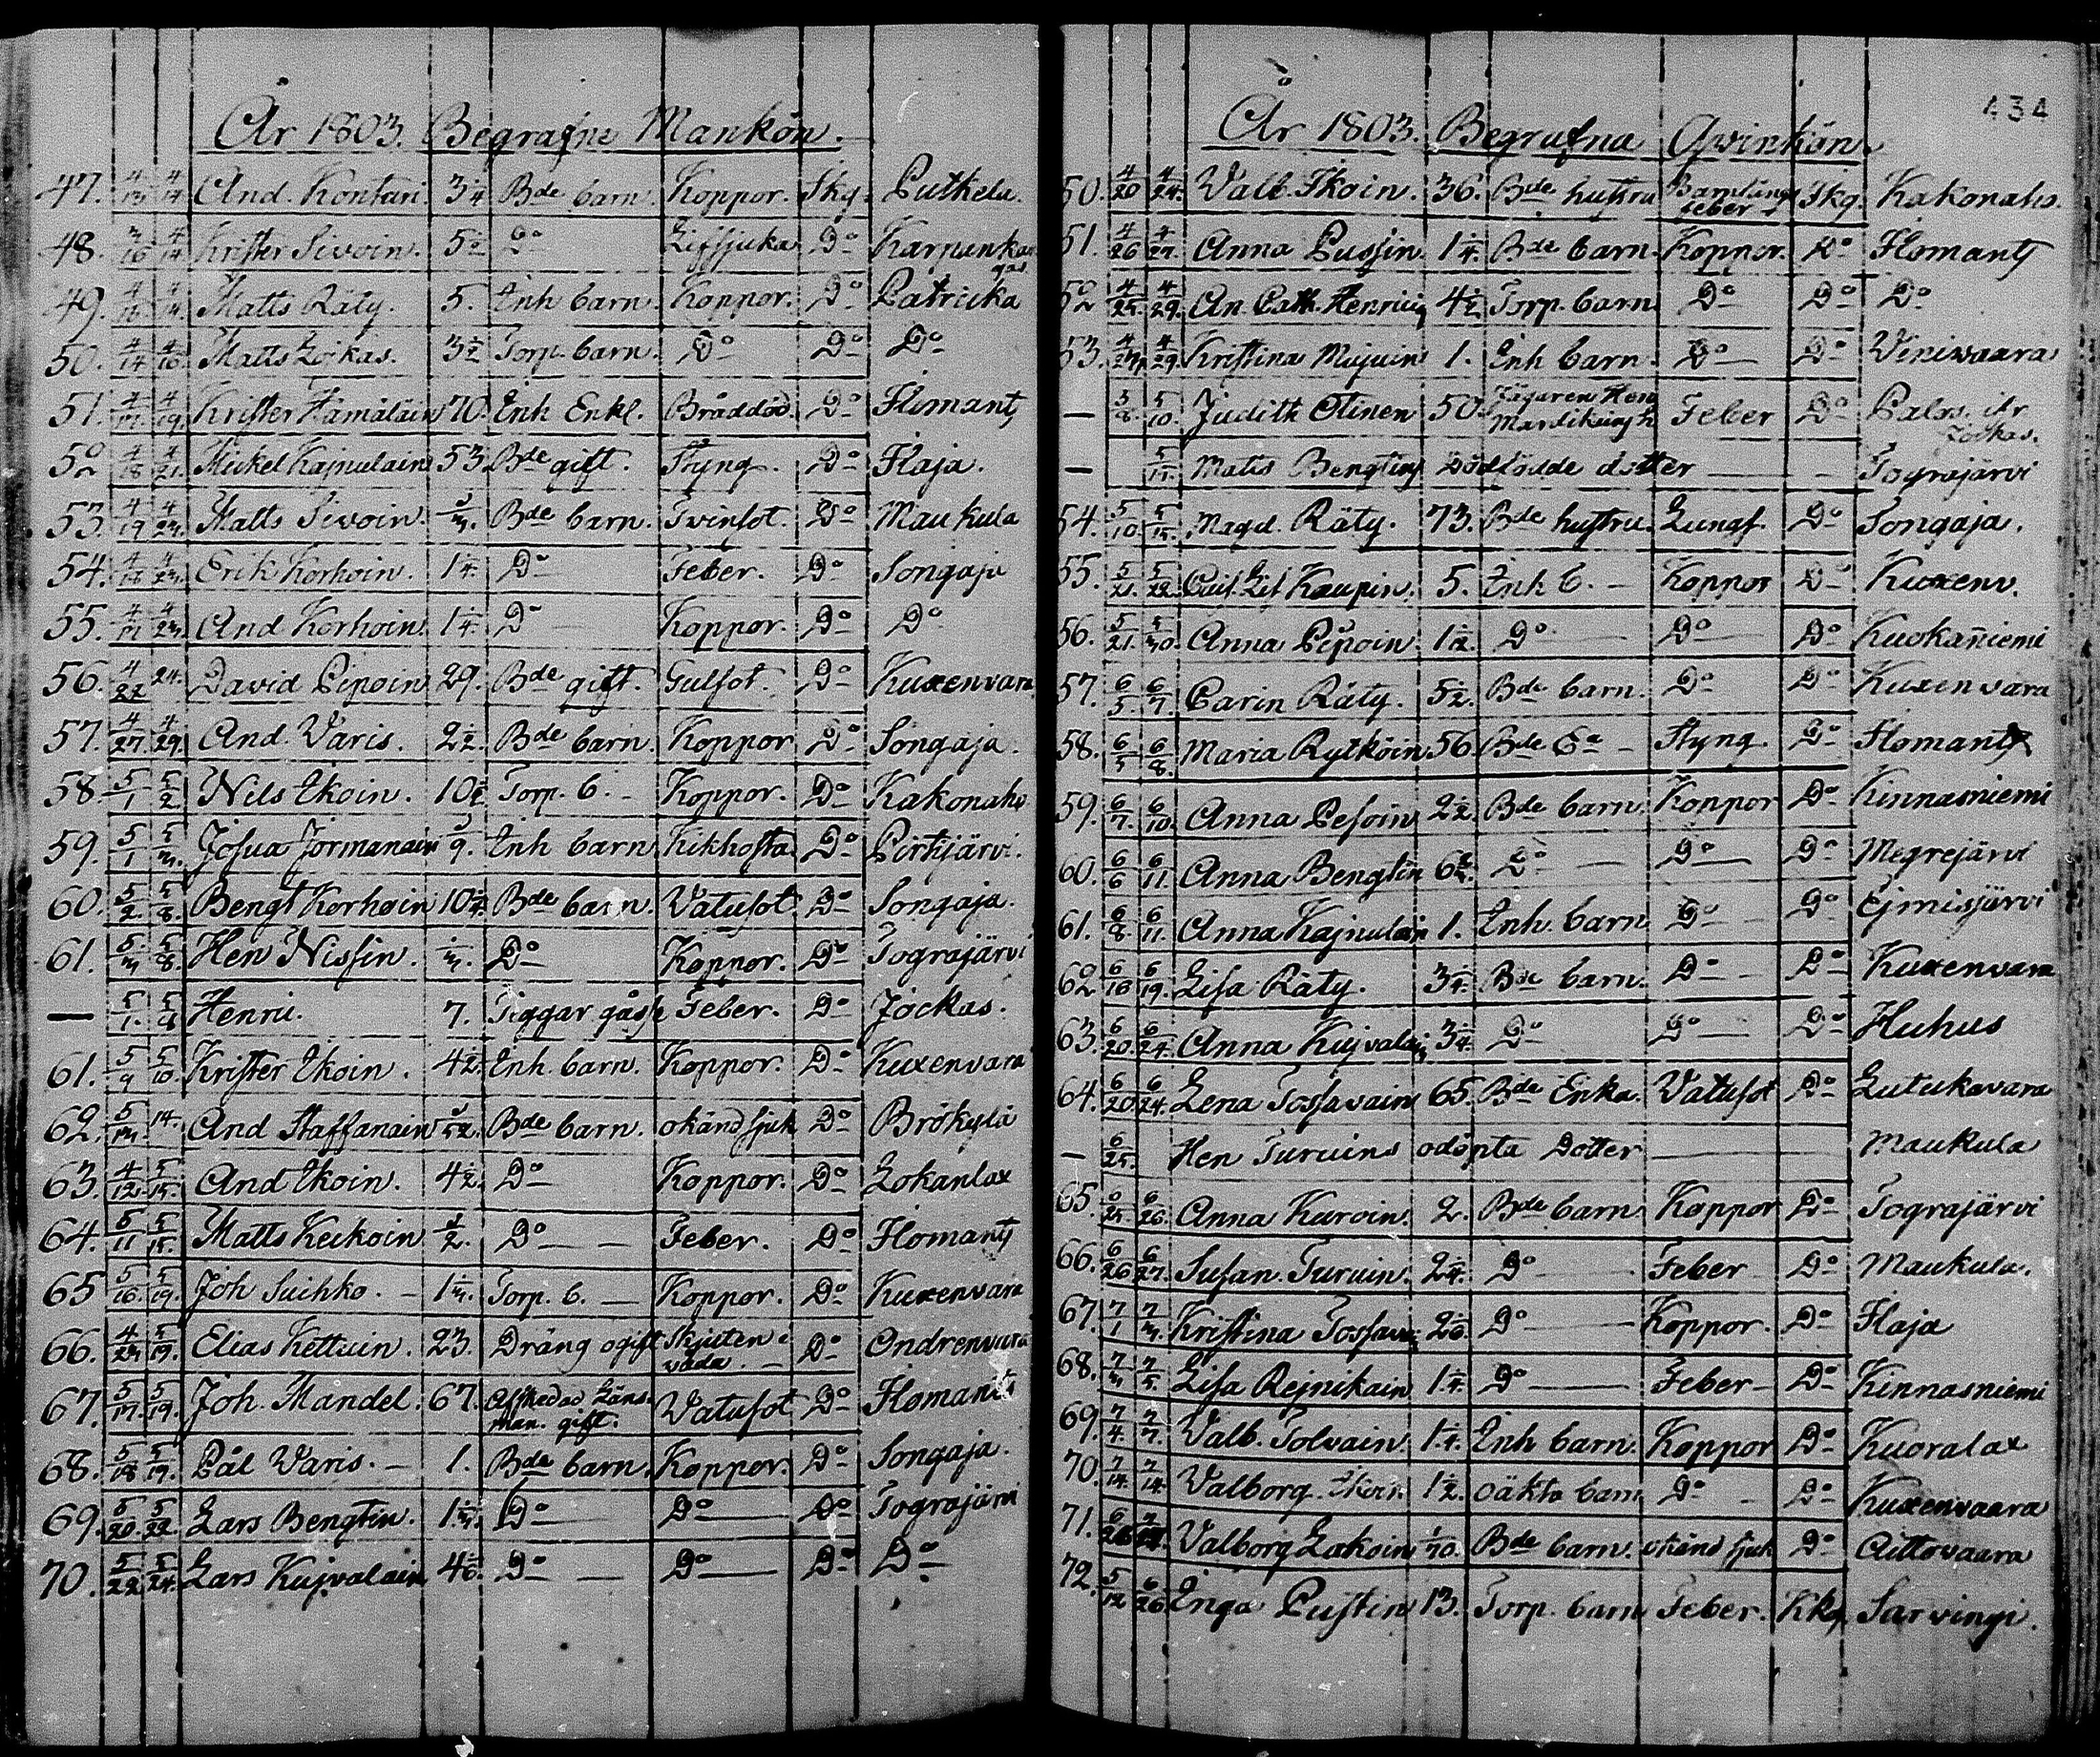 År 1803. Begrafne Mankön.
47. 4/13 4/14 And. Kontari. 3 1/4 Bde barn. Koppor. Skg. Putkela.
48. 3/16 4/14 Krister Sivoin. 5 Do Lifsjuka Do
49. 4/14. Matts Räty. 5. Enh barn Koppor. Do Patricka
50. 4/14 4/16. Matts Zoikas. 3 1/2 Torp. barn. Do Do Do
51. 4/17. 4/19. Krister Hämäläin 70. Enh Enkl. Bråddöd. Do Ilomants
52 4/18 4/21. Mickel Kajnulain 53. Bde gift. Styng. Do Ilaja.
53. 4/19 4/23. Matts Sivoin. Bde barn. Tvinsot. Do Maukula
54. 4/18 4/23. Erik Korhoin. 1 1/4. Do Feber. Do Songaja
55. 4/21 4/23. And Korhoin. 1 1/4. Do Koppor. Do Do
56. 4/22 24. David Pipoin 29. Bde gift. Gulsot. Do Kuxenvara
57. 4/27. 4/29. And. Varis. 2 1/2. Bde barn. Koppor Do Songaja.
58. 5/1 5/2 Nils Ikoin. 10 Torp. b. Koppor. Do Kakonaho
59. 5/1 5/3. Josua Jormanain 9. Enh barn Kikhosta Do Pirttijärvi.
60. 5/2 5/8. Bengt Korhoin 10 Bde barn. Vatusot. Do Songaja.
61. 5/3 5/8. Hen Nissin. Do Koppor. Do Tograjärvi
— 5/1. 5/8 Henric. 7. Tiggar gåsse Feber. Do Jockas.
61. 5/9 5/10. Krister Ikoin. 4 1/2. Enh. barn. Koppor. Do Kuxenvara
62. 5/13. 14. And Staffanain Bde barn. okänd sjuk Do Brökylä
63. 4/12. 5/15. And Ikoin. 4 1/2. Do Koppor. Do Lokanlax
64. 5/11 5/15. Matts Keikoin 1/2. Do Feber. Do Ilomants
65 5/16. 5/19. Joh Suihko. 1 1/3. Torp. b. Koppor. Do Kuxenvara
66. 4/23 5/19. Elias Kettuin. 23. Dräng ogift Skjuten vada. Do Ondrenvara
67. 5/17. 5/19. Joh. Mandel. 67. Afskedad Länsman. gift. Vatusot Do Ilomants
68. 5/18 5/19. Pål Varis. 1. Bde barn. Koppor. Do Songaja.
69. 5/20 5/22. Lars Bengtin. 1 1/3. Do Do Do Tograjärvi
70. 5/22 5/24. Lars Kujvalain 4 Do Do Do Do
434
År 1803. Begrafna Qvinkön.
50. 4/20 4/24. Valb. Ikoin. 36. Bde hustru Barnsängs feber Skg. Kakonaho.
51. 4/26 4/27. Anna Pussin. 1 1/4. Bde barn. Koppor. Do Ilomants
52 4/25. 4/29. An. Cath. Henricis 4 1/2. Torp. barn Do Do Do
53. 4/27 4/29. Kristina Mujuin 1. Enh barn. Do Do Venivaara
— 5/8. 5/10. Judith Otinen 50. Jägaren Hen h. Feber Do
— 5/15. Matts Bengtins dödfödde dotter Tograjärvi
54. 5/10. 5/15. Magd. Räty. 73. Bde hustru. Lungs. Do Songaja.
55. 5/21. 5/22. Lis Kaupin. 5. Enh b. Koppor Do Kuxenv.
56. 5/21. 5/30. Anna Pipoin. 1 1/2. Do Do Do Kuokañiemi
57. 6/5. 6/7. Carin Räty. 5 1/2. Bde barn. Do Do Kuxenvara
58. 6/5 6/8. Maria Rytköin 56. Bde Ea Styng. Do Ilomants
59. 6/7. 6/10. Anna Pesoin 2 1/2. Bde barn. Koppor Do Kinnasniemi
60. 6/6 6/11. Anna Bengtin 6 Do Do Do Megrejärvi
61. 6/8. 6/11. Anna Kajnulain 1. Enh. barn Do Do Ejmisjärvi
62 6/18 6/19. Lisa Räty. 3 1/4. Bde barn. Do Do Kuxenvara
63. 6/20. 6/24. Anna Kujvalain 3 1/4. Do Do Do Huhus
64. 6/20. 6/24. Lena Tossavain 65. Bde Enka. Vatusot Do Lutukavara
— 6/25. Hen Turuins odöpta Dotter Maukula
65. 6/25. 6/26. Anna Kuroin. 2. Bde barn Koppor Do Tograjärvi
66. 6/26 6/27. Susan. Turuin. 2 1/4. Do Feber Do Maukula.
67. 7/1 7/3. Kristina Tossava 2 Do Koppor. Do Ilaja
68. 7/3 7/5. Lisa Rejnikain 1 1/4. Do Feber Do Kinnasniemi
69. 7/4. 7/7. Valb. Tolvain. 1 1/4. Enh barn. Koppor Do Kuoralax
70. 7/14. 7/14. Valborg Ikoin. 1 1/2. oäkta barn Do Do Kuxenvaara
71. 6/26 Valborg Lakoin Bde barn. okänd sjuk Do Aittovaara
72. 5/12 6/26 Enga Pustin 13. Torp. barn Feber. Kkg. Sarvingi.